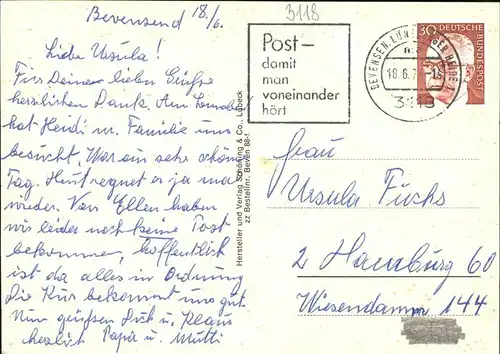 Bevensend 18./6.
3118
Liebe Ursula!
Für Deine lieben Grüße
herzlichen Dank. Am Sonntag
hat Heidi u. Familie uns
besucht. War ein sehr schöner
Tag. Heut regnet es ja mal
wieder. Von Ellen haben
wir leider noch keine Post
bekommen, hoffentlich
ist da alles in Ordnung
Die Kur bekommt uns gut.
Nun grüßen Dich u. Klaus
herzlich Papa u. Mutti
Post –
damit
man
voneinander
hört
BEVENSEN, LÜNEBURGER HEIDE
18.6.7
3118
30 DEUTSCHE
BUNDESPOST
Hersteller und Verlag Schöning & Co., Lübeck
zz Bestellnr. Beven 88
Frau
Ursula Fuchs
2 Hamburg 60
Wiesendamm 144